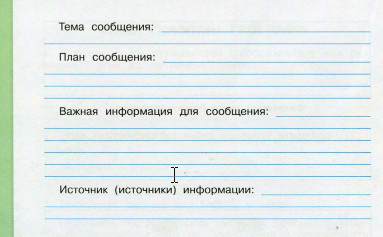 Тема сообщения:
План сообщения:
Важная информация для сообщения:
Источник (источники) информации: